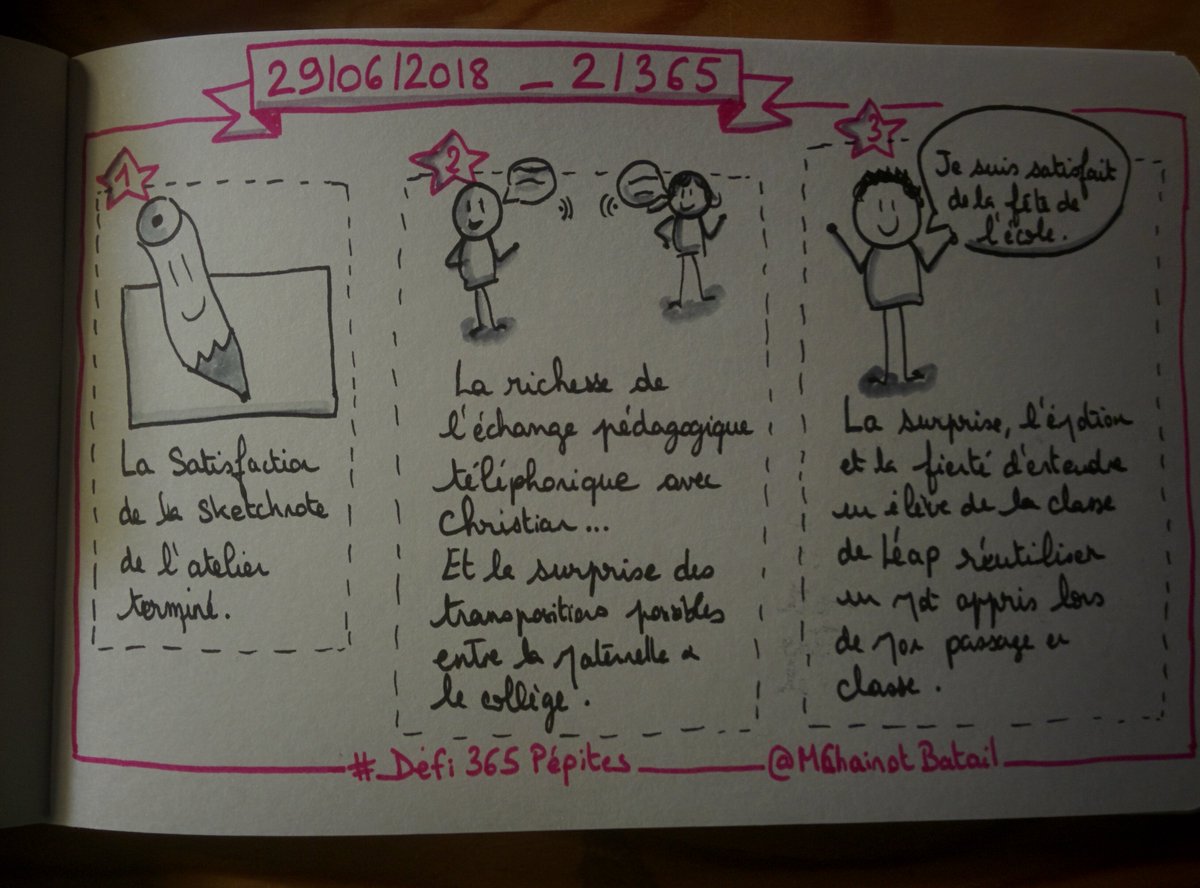 29/06/2018 _ 2/365
1
La Satisfaction
de la sketchnote
de l'atelier
terminé.
2
La richesse de
l'échange pédagogique
téléphonique avec
Christian...
Et la surprise des
transpositions possibles
entre la maternelle &
le collège.
3
Je suis satisfait
de la fête de
l'école.
La surprise, l'émotion
et la fierté d'entendre
un élève de la classe
de Léap réutiliser
un mot appris lors
de mon passage en
classe.
# Défi 365 Pépites
@MGhainot Batail